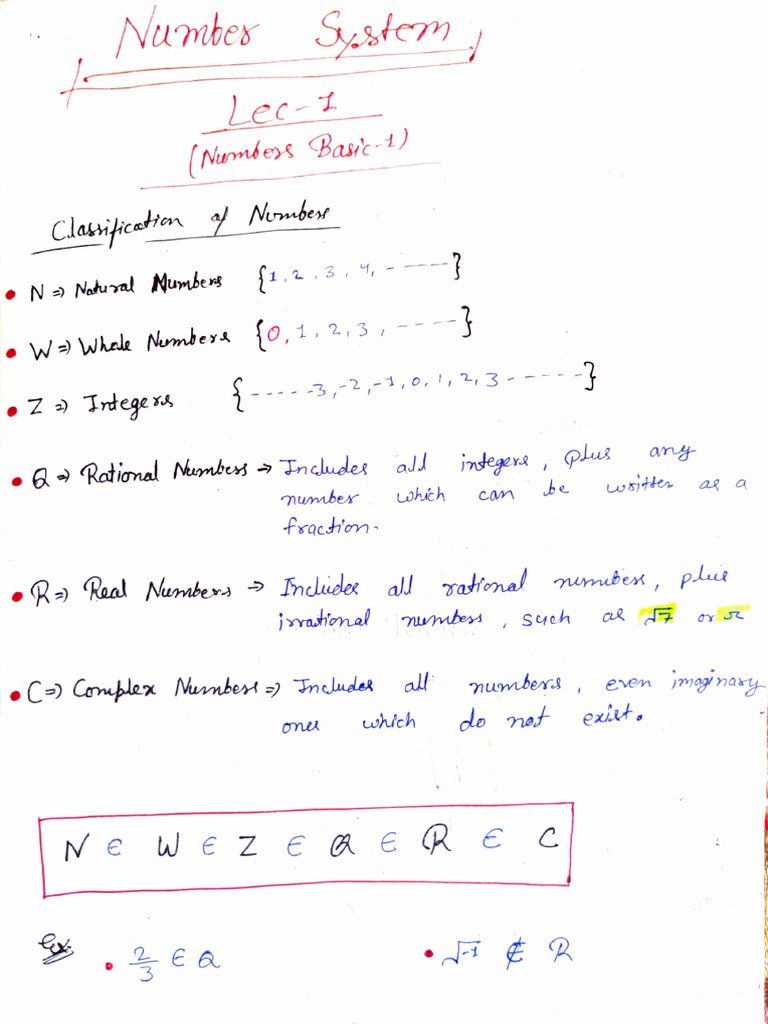 Number System
Lec-1
(Numbers Basic-1)
Classification of Numbers
N => Natural Numbers {1, 2, 3, 4, - ----}
W => Whole Numbers {0, 1, 2, 3, -----}
Z => Integers {-----3, -2, -1, 0, 1, 2, 3------}
Q => Rational Numbers → Includes all integers, plus any
number which can be written as a
fraction.
R => Real Numbers → Includes all rational numbers, plus
irrational numbers, such as √7 or π
C => Complex Numbers => Includes all numbers, even imaginary
ones which do not exist.
N ∈ W ∈ Z ∈ Q ∈ R ∈ C
Ex. • 2/3 ∈ Q • √-1 ∉ R